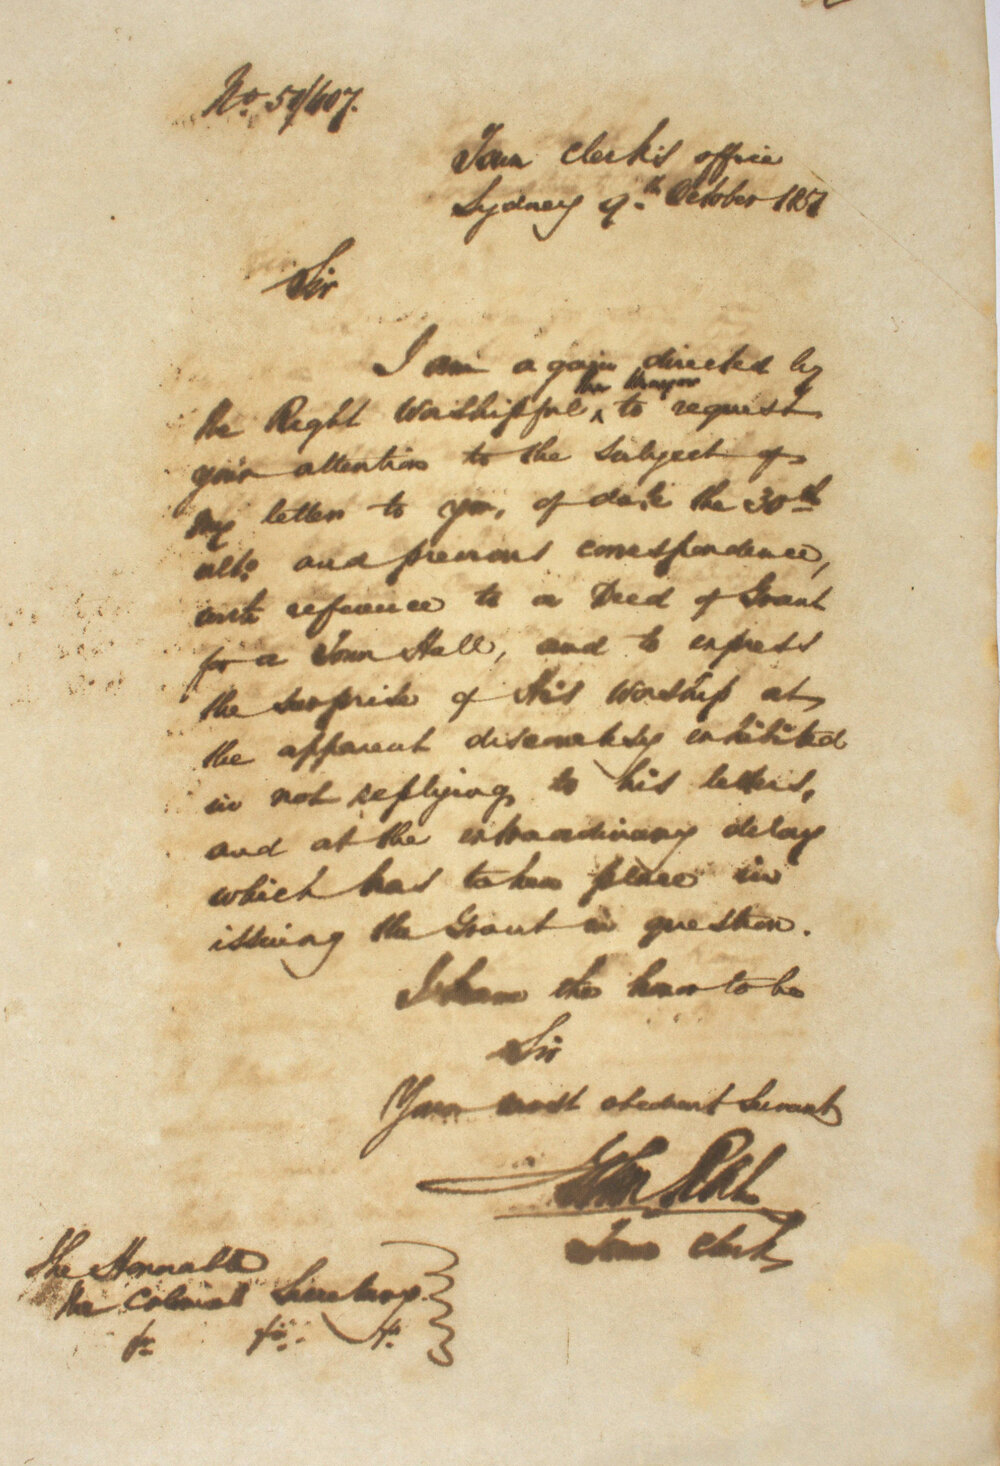 No. 51/607.
Town Clerk's office
Sydney 9th October 1851
Sir
I am again directed by
the Mayor
the Right Worshipful ^ to request
your attention to the subject of
my letter to you, of date the 30th
ulto. and previous correspondence,
with reference to a Deed of Grant
for a Town Hall, and to express
the surprise of His Worship at
the apparent discourtesy exhibited
in not replying to his letters,
and at the extraordinary delay
which has taken place in
issuing the Grant in question.
I have the honor to be
Sir
Your most obedient Servant
John
Town Clerk
The Honorable
the Colonial Secretary